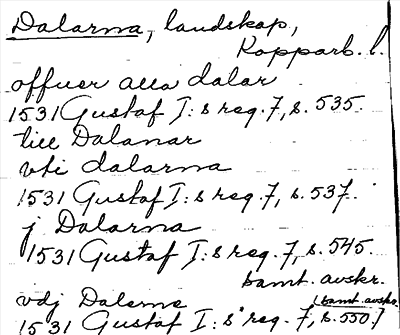 Dalarna, landskap,
Kopparb. l.
offuer alla dalar
1531 Gustaf I:s reg. 7, s. 535.
till Dalanar
vti dalarna
1531 Gustaf I:s reg. 7, s. 537.
j Dalarna
1531 Gustaf I:s reg. 7, s. 545.
samt. avskr.
vdj Dalerne (samt. avskr.
1531 Gustaf I:s reg. 7, s. 550.)